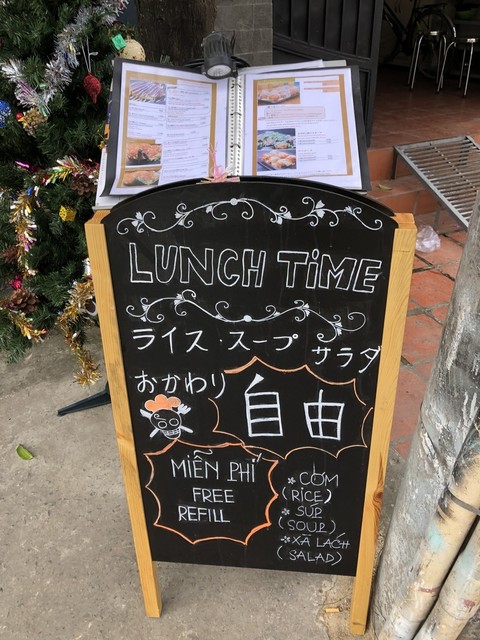 LUNCH TiME
ライス・スープ サラダ
おかわり
自由
MIỄN PHÍ
FREE
REFILL
* CƠM
(RICE)
* SÚP
(SOUP)
* XÀ LÁCH
(SALAD)